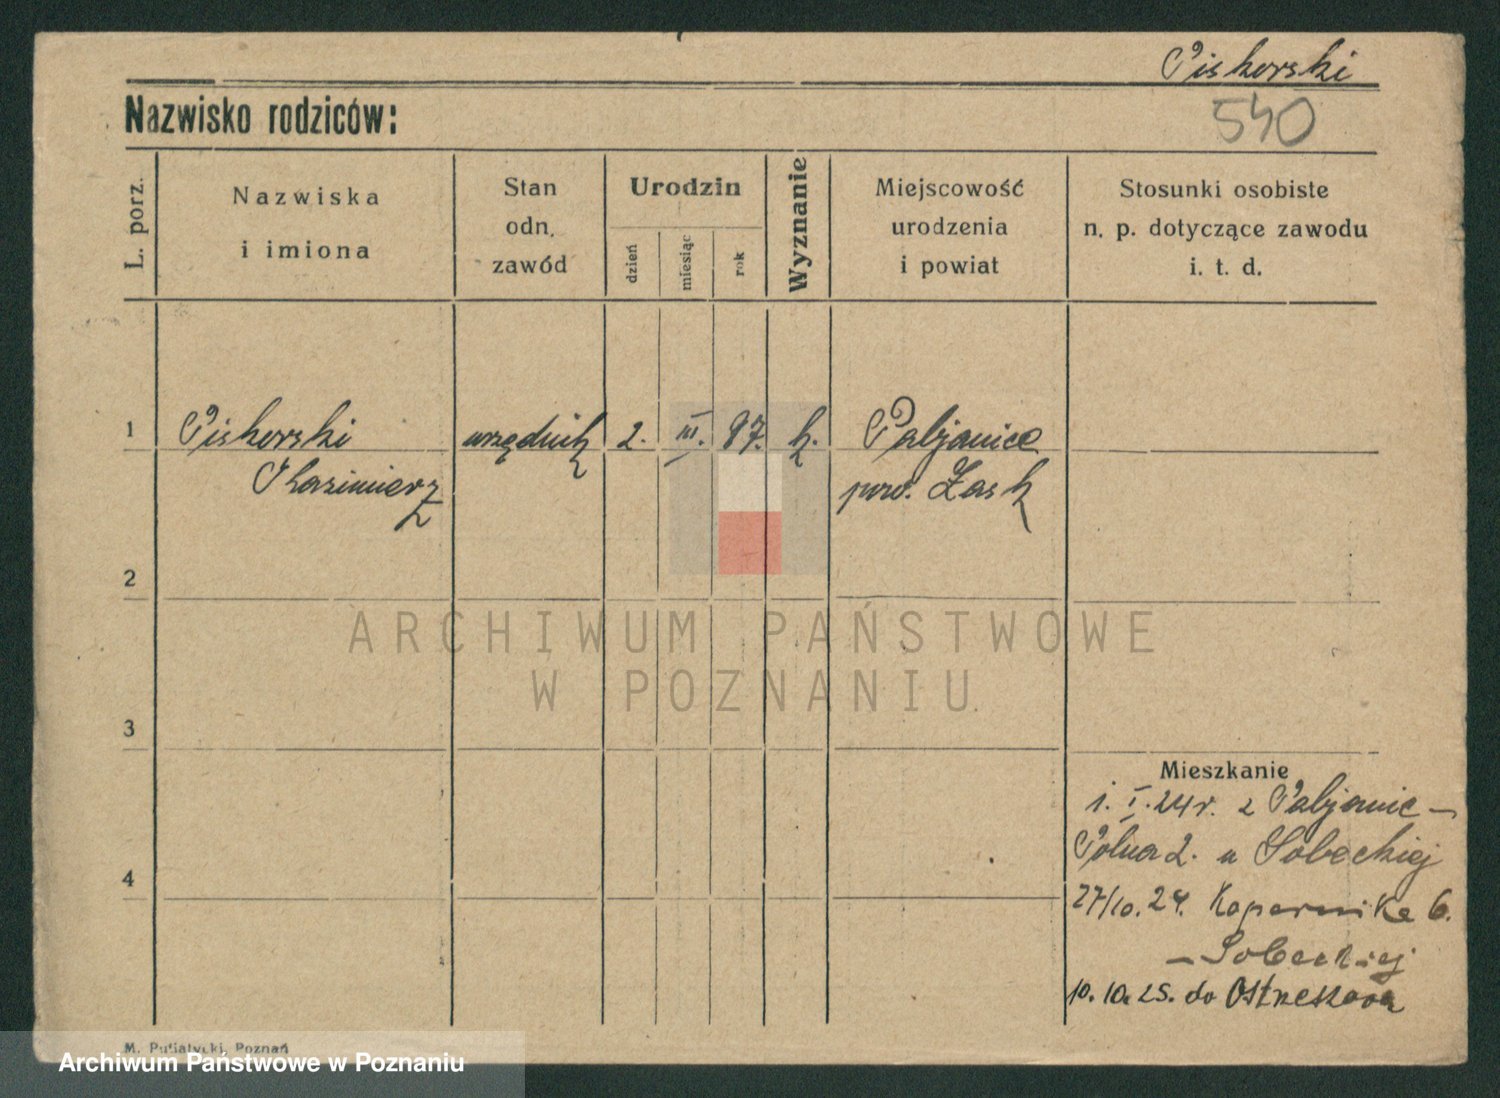 Piskorski
540
Nazwisko rodziców:
L. porz.
Nazwiska
i imiona
Stan
odn.
zawód
Urodzin
dzień
miesiąc
rok
Wyznanie
Miejscowość
urodzenia
i powiat
Stosunki osobiste
n. p. dotyczące zawodu
i. t. d.
1
Piskorski
Kazimierz
urzędnik
2.
III.
87.
k.
Pabjanice
pow. Łask
2
3
4
ARCHIWUM PAŃSTWOWE
W POZNANIU
Mieszkanie
1. I. 24 r. z Pabjanic –
Polna 2. u Sobeckiej
27/10. 24. Kopernika 6.
– Sobeckiej
10. 10. 25. do Ostrzeszowa
M. Putiatycki, Poznań
Archiwum Państwowe w Poznaniu